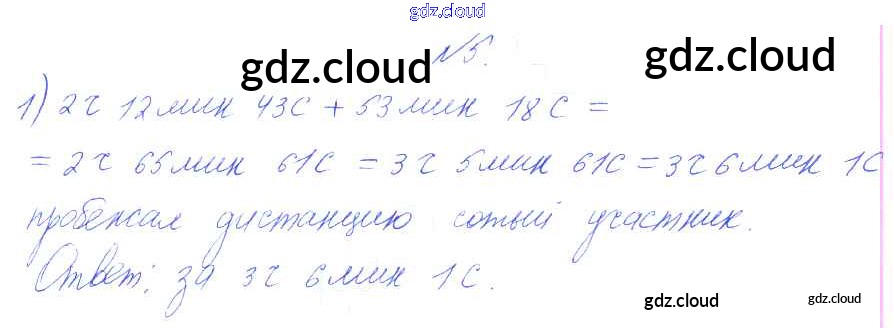 gdz.cloud
№5.
gdz.cloud gdz.cloud
1) 2ч 12мин 43с + 53мин 18с =
= 2ч 65мин 61с = 3ч 5мин 61с = 3ч 6мин 1с
пробежал дистанцию сотый участник.
Ответ: за 3ч 6мин 1с.
gdz.cloud gdz.cloud